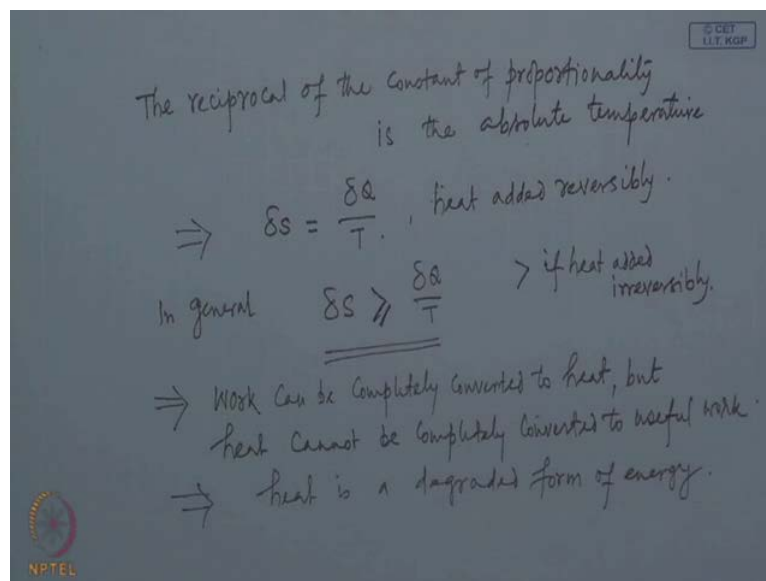 © CET
I.I.T. KGP
The reciprocal of the constant of proportionality
is the absolute temperature
⇒ δS = δQ/T. , heat added reversibly.
In general δS ⩾ δQ/T > if heat added
irreversibly.
⇒ Work can be completely converted to heat, but
heat cannot be completely converted to useful work.
⇒ heat is a degraded form of energy.
NPTEL